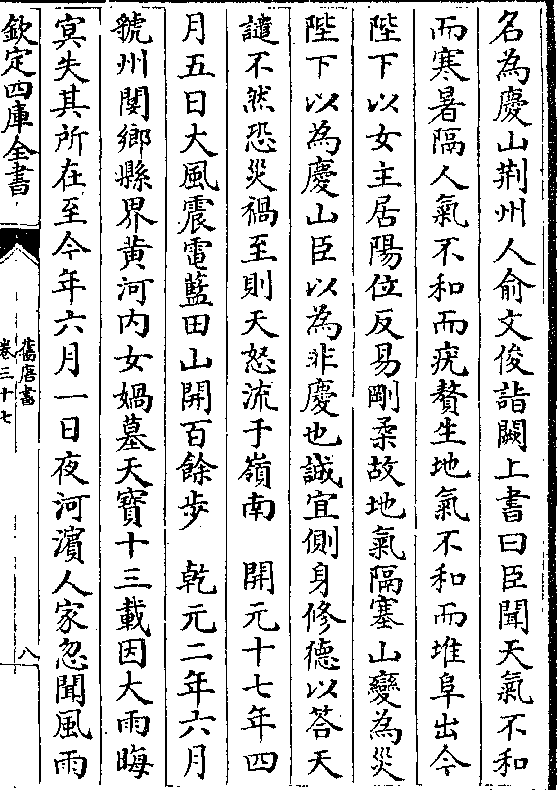 名為慶山荆州人俞文俊詣闕上書曰臣聞天氣不和
而寒暑隔人氣不和而疣贅生地氣不和而堆阜出今
陛下以女主居陽位反易剛柔故地氣隔塞山變為災
陛下以為慶山臣以為非慶也誠宜側身修德以答天
譴不然恐災禍至則天怒流于嶺南　開元十七年四
月五日大風震電藍田山開百餘步　乾元二年六月
虢州閿鄉縣界黄河内女媧墓天寶十三載因大雨晦
㝠失其所在至今年六月一日夜河濱人家忽聞風雨
欽定四庫全書
舊唐書
卷三十七
八